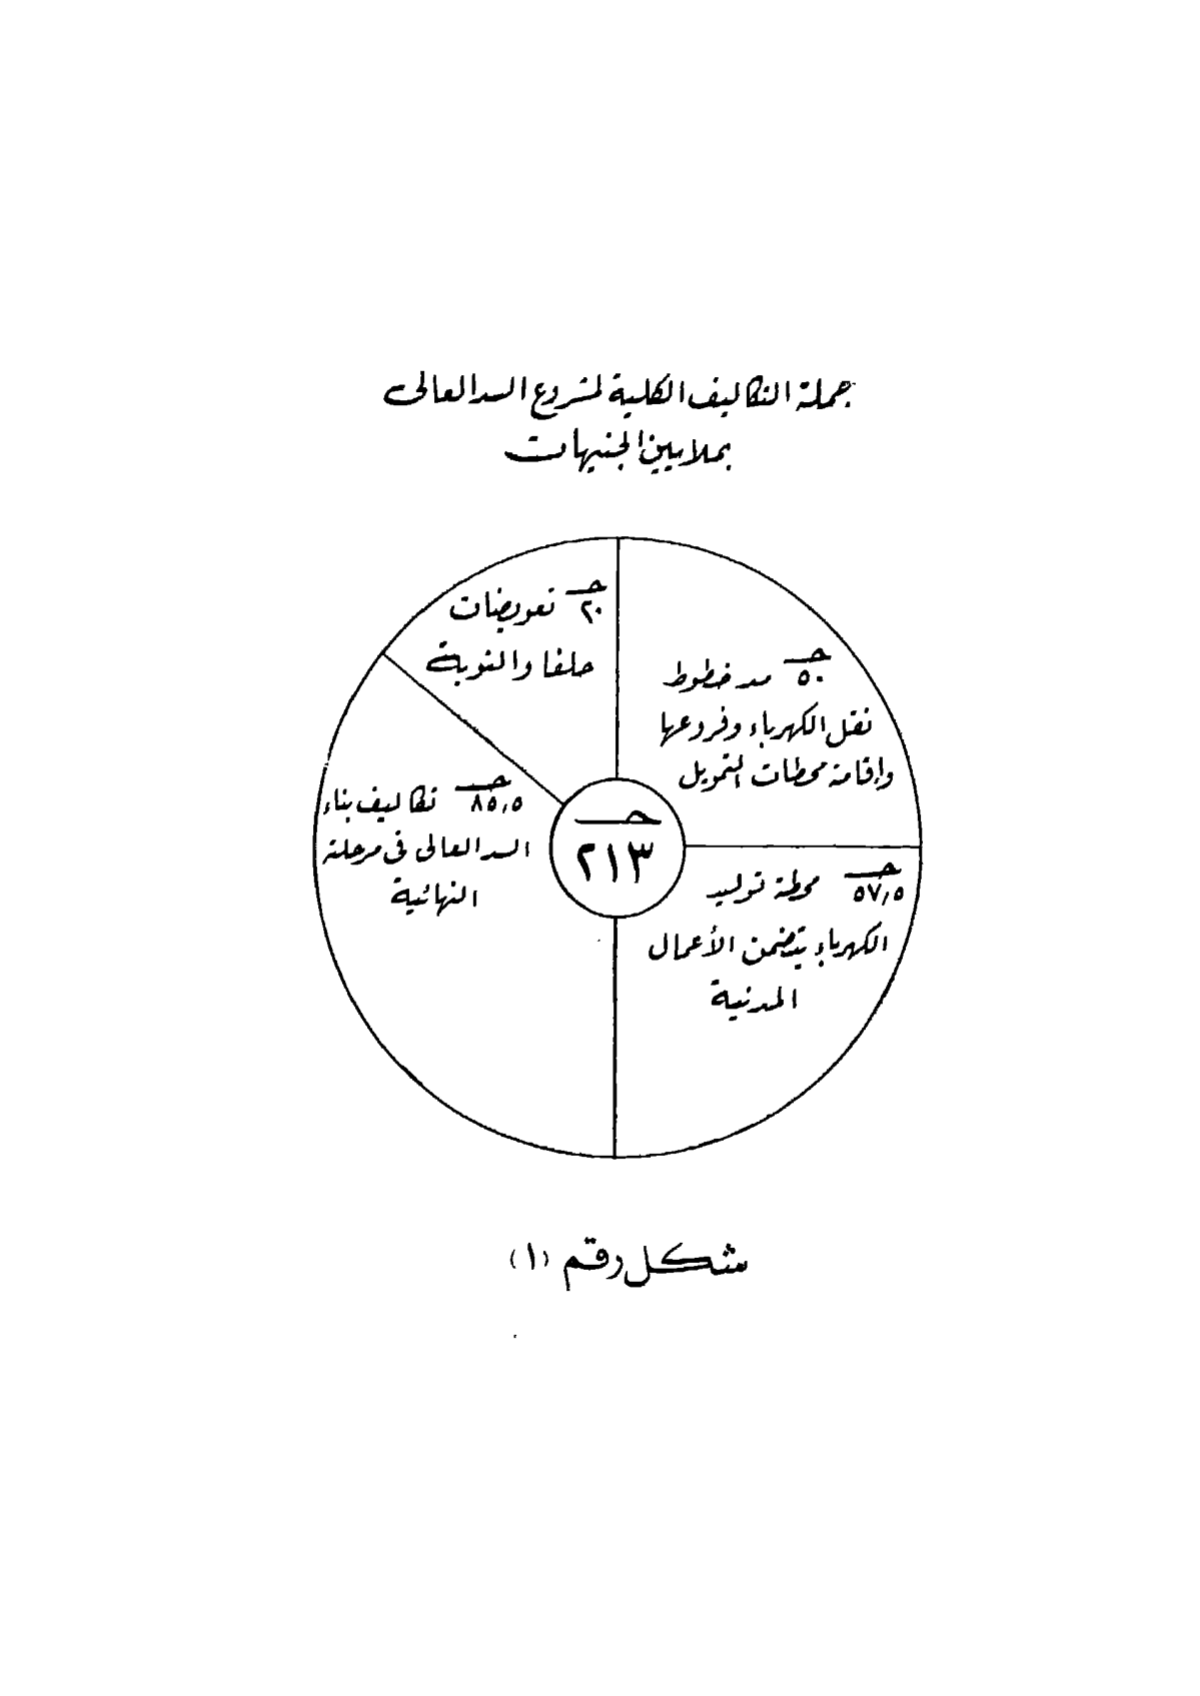 جملة التكاليف الكلية لمشروع السد العالى
بملايين الجنيهات
جـ
٢٠ تعويضات
حلفا والنوبة
جـ
٥٠ مد خطوط
نقل الكهرباء وفروعها
وإقامة محطات التمويل
جـ
٨٥٫٥ تكاليف بناء
السد العالى فى مرحلته
النهائية
جـ
٢١٣
جـ
٥٧٫٥ محطة توليد
الكهرباء يتضمن الأعمال
المدنية
شكل رقم (١)